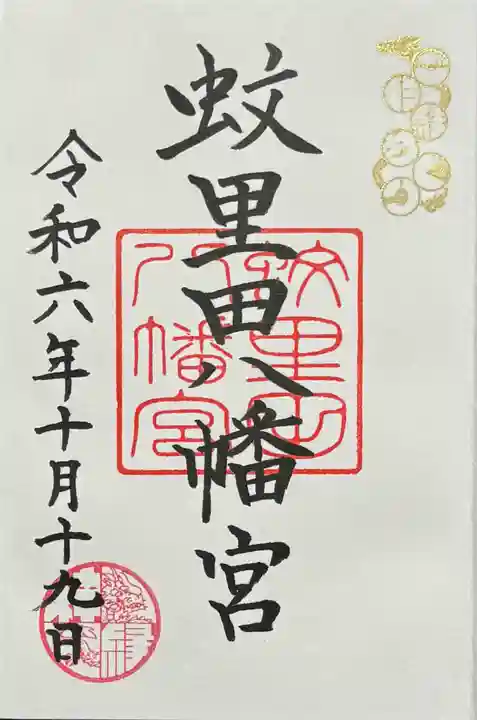 蚊里田八幡宮
令和六年十月十九日
蚊里田
八幡宮